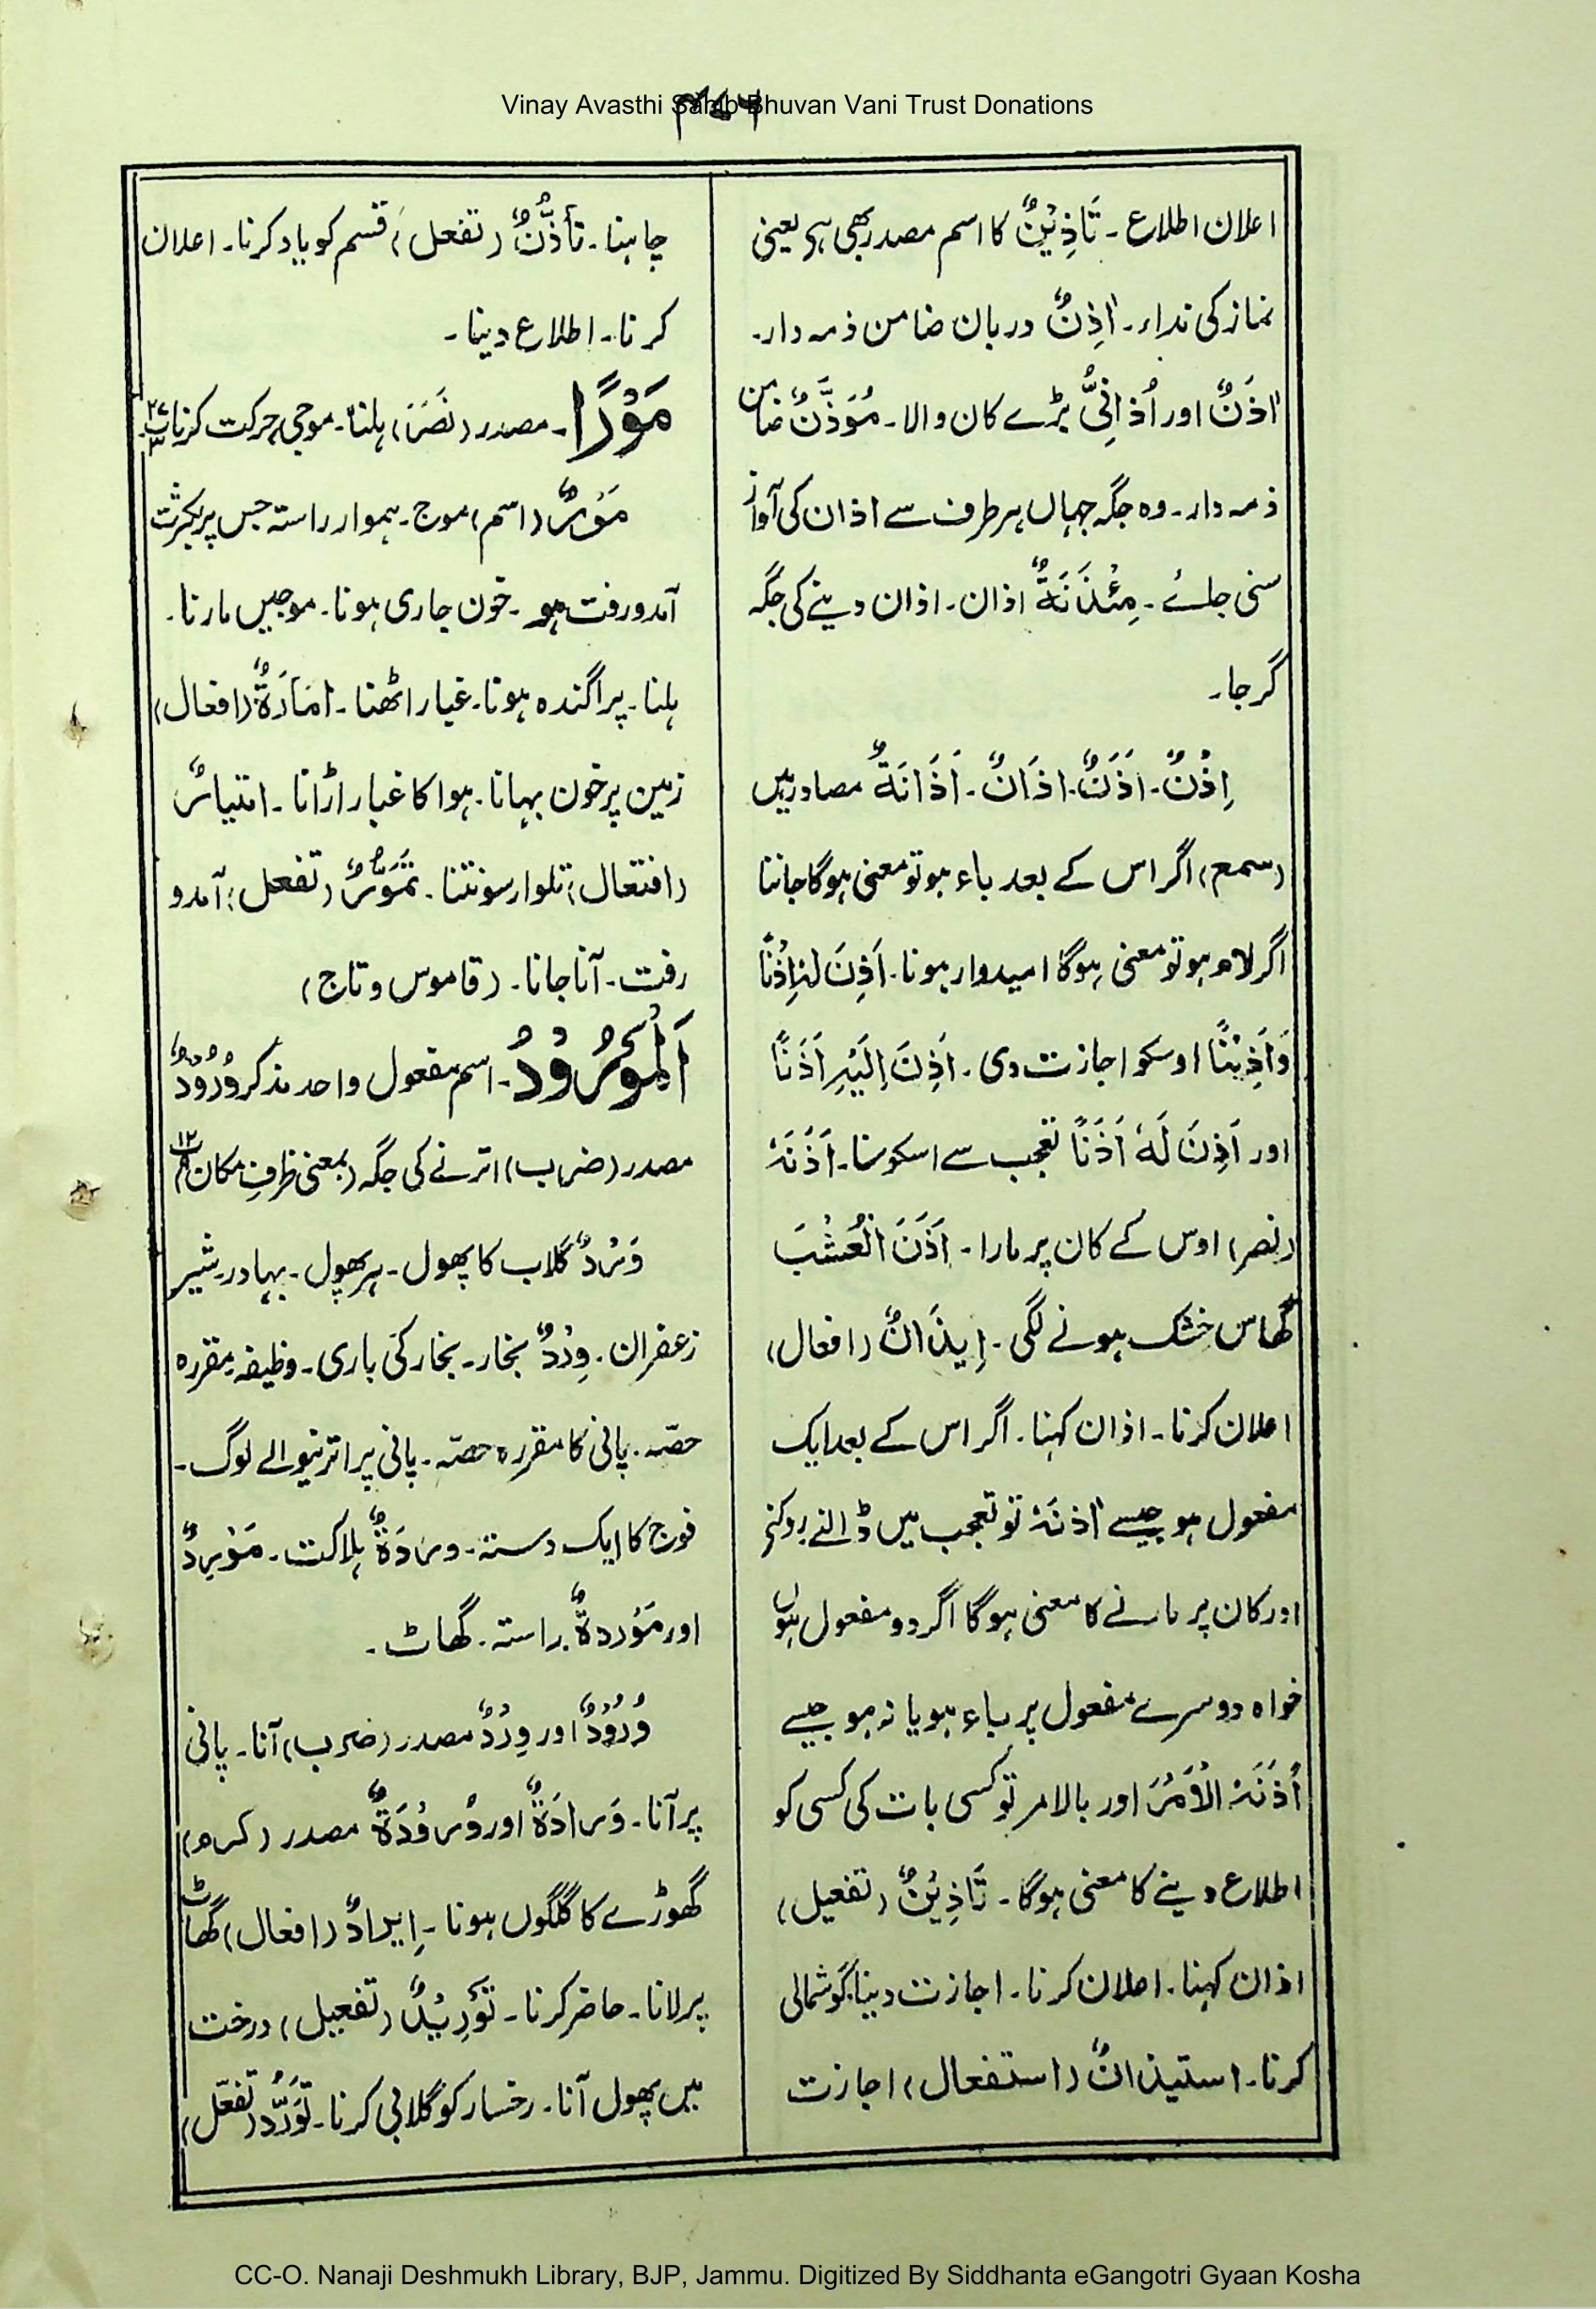 Vinay Avasthi Sahib Bhuvan Vani Trust Donations
اعلان اطلاع۔ تَاذِیْنٌ کا اسم مصدر بھی ہے یعنی
نماز کی نداء۔ اٰذِنٌ دربان ضامن ذمہ دار۔
اٰذَنٌ اور اُذَانِیٌّ بڑے کان والا۔ مُوَذَّنٌ ضامن
ذمہ دار۔ وہ جگہ جہاں ہر طرف سے اذان کی آواز
سنی جائے۔ مِئْذَنَةٌ اذان۔ اذان دینے کی جگہ
گرجا۔
اِذْنٌ۔ اَذَنٌ۔ اَذَانٌ۔ اَذَانَةٌ مصادر ہیں
(سمع) اگر اس کے بعد باء ہو تو معنی ہوگا جاننا
اگر لام ہو تو معنی ہوگا امیدوار ہونا۔ اَذِنَ لَہٗ اِذْنًا
وَاَذِیْنًا اوسکو اجازت دی۔ اَذِنَ اِلَیْہِ اَذَنًا
اور اَذِنَ لَہٗ اَذَنًا تعجب سے اسکو سنا۔ اَذَنَہٗ
(نصر) اوس کے کان پر مارا۔ اَذَنَ الْعُشْبَ
گھاس خشک ہونے لگی۔ اِیذَانٌ (افعال)
اعلان کرنا۔ اذان کہنا۔ اگر اس کے بعد ایک
مفعول ہو جیسے اٰذَنَہٗ تو تعجب میں ڈالنے روکنے
اور کان پر مارنے کا معنی ہوگا اگر دو مفعول ہوں
خواہ دوسرے مفعول پر باء ہو یا نہ ہو جیسے
اٰذَنَہٗ الْاَمْرَ اور بالامر تو کسی بات کی کسی کو
اطلاع دینے کا معنی ہوگا۔ تَاذِیْنٌ (تفعیل)
اذان کہنا۔ اعلان کرنا۔ اجازت دینا۔ گوشمالی
کرنا۔ استیذانٌ (استفعال) اجازت
چاہنا۔ تأَذُّنٌ (تفعل) قسم کو یاد کرنا۔ اعلان
کرنا۔ اطلاع دینا۔
مَوْرًا۔ مصدر (نَصَرَ) ہلنا۔ موجی حرکت کرنا پ ۲۷ ۳
مَوْرٌ (اسم) موج۔ ہموار راستہ جس پر بکثرت
آمدورفت ہو۔ خون جاری ہونا۔ موجیں مارنا۔
ہلنا۔ پراگندہ ہونا۔ غبار اٹھنا۔ اِمَارَةٌ (افعال)
زمین پر خون بہانا۔ ہوا کا غبار اڑانا۔ امتیارٌ
(افتعال) تلوار سونتنا۔ تَمَوُّرٌ (تفعل) آمدو
رفت۔ آنا جانا۔ (قاموس و تاج)
اَلْمَوْرُوْدُ۔ اسم مفعول واحد مذکر وُرُوْدٌ
مصدر (ضرب) اترنے کی جگہ (بمعنی ظرفِ مکان) ۱۲
وَرْدٌ گلاب کا پھول۔ ہر پھول۔ بہادر۔ شیر
زعفران۔ وِرْدٌ بخار۔ بخار کی باری۔ وظیفہ مقررہ
حصّہ۔ پانی کا مقررہ حصّہ۔ پانی پر اترنیوالے لوگ۔
فوج کا ایک دستہ۔ وردَةٌ ہلاکت۔ مَوْرِدٌ
اور مَوْرِدةٌ راستہ۔ گھاٹ۔
وُرُوْدٌ اور وِرْدٌ مصدر (ضرب) آنا۔ پانی
پر آنا۔ وَرادَةٌ اور وُروْدَةٌ مصدر (کرم)
گھوڑے کا گلگوں ہونا۔ اِیرادٌ (افعال) گھاٹ
پر لانا۔ حاضر کرنا۔ تَوْرِیْدٌ (تفعیل) درخت
میں پھول آنا۔ رخسار کو گلابی کرنا۔ تَوَرُّد (تفعّل)
CC-O. Nanaji Deshmukh Library, BJP, Jammu. Digitized By Siddhanta eGangotri Gyaan Kosha